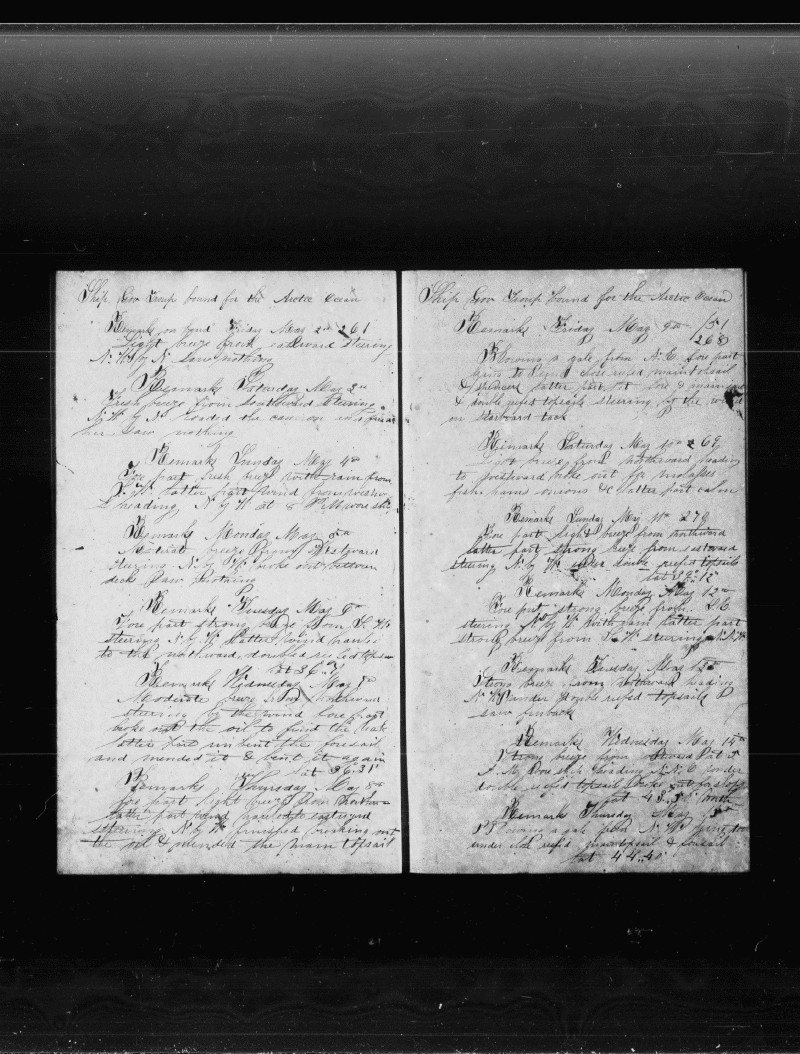 Ship Gov Troup bound for the Arctic Ocean
Remarks on bord Friday May 2nd 261
Light breeze from eastward steering
N.W. by N. Saw nothing
Remarks Saturday May 3rd
Fresh breeze from Southward Steering
N.W. by N loaded the cannon and fired
her Saw nothing
Remarks Sunday May 4th
Fore part fresh breeze with rain from
S.W. latter part wind from
heading N by W at 8 P.M.
Remarks Monday May 5th
Modrate breeze from Westward
steering N. by W. broke out between
decks Saw nothing
Remarks Tuesday May 6th
Fore part strong breeze from S.W.
steering N.N.W. Latter wind hauled
to the northward, doubled reefed topsails
Lat 36..
Remarks Wednesday May 7th
Moderate breeze from Northward
steering by the wind fore part
broke out the oil to find the leak
latter part unbent the foresail
and mended it & bent it again
Lat 36.31
Remarks Thursday May 8th
fore part light breeze from Northward
latter part wind hauled to eastward
steering N. by W. finished breaking out
the oil & mended the main topsail
Ship Gov Troup bound for the Arctic Ocean
Remarks Friday May 9th 151
268
Blowing a gale from N.E. fore part
lying to under close reefed maintopsail
& foresail latter part set fore & mainsail
& double refed topsails steering by the wind
on starboard tack
Remarks Saturday May 10th 269
Light breeze from northward heading
to westward broke out for molasses
fish hams onions &c latter part calm
Remarks Sunday May 11th 279
Fore part light breeze from northward
latter part strong breeze from eastward
steering N. by W. under double refed topsails
Lat 39..12
Remarks Monday May 12th
Fore part strong breeze from S.E.
steering N. by W. with rain latter part
strong breeze from S.W. steering N.N.W.
Remarks Tuesday May 13th
Strong breeze from Westward heading
N.W. under double refed topsails
saw finback
Remarks Wednesday May 14th
Strong breeze from Westward at 5
P.M. heading N.N.E. under
double refed topsail broke out for slops
Lat 43..5 North
Remarks Thursday May 15th
Blowing a gale from N.W. lying too
under close refed maintopsail & foresail
Lat 44..40